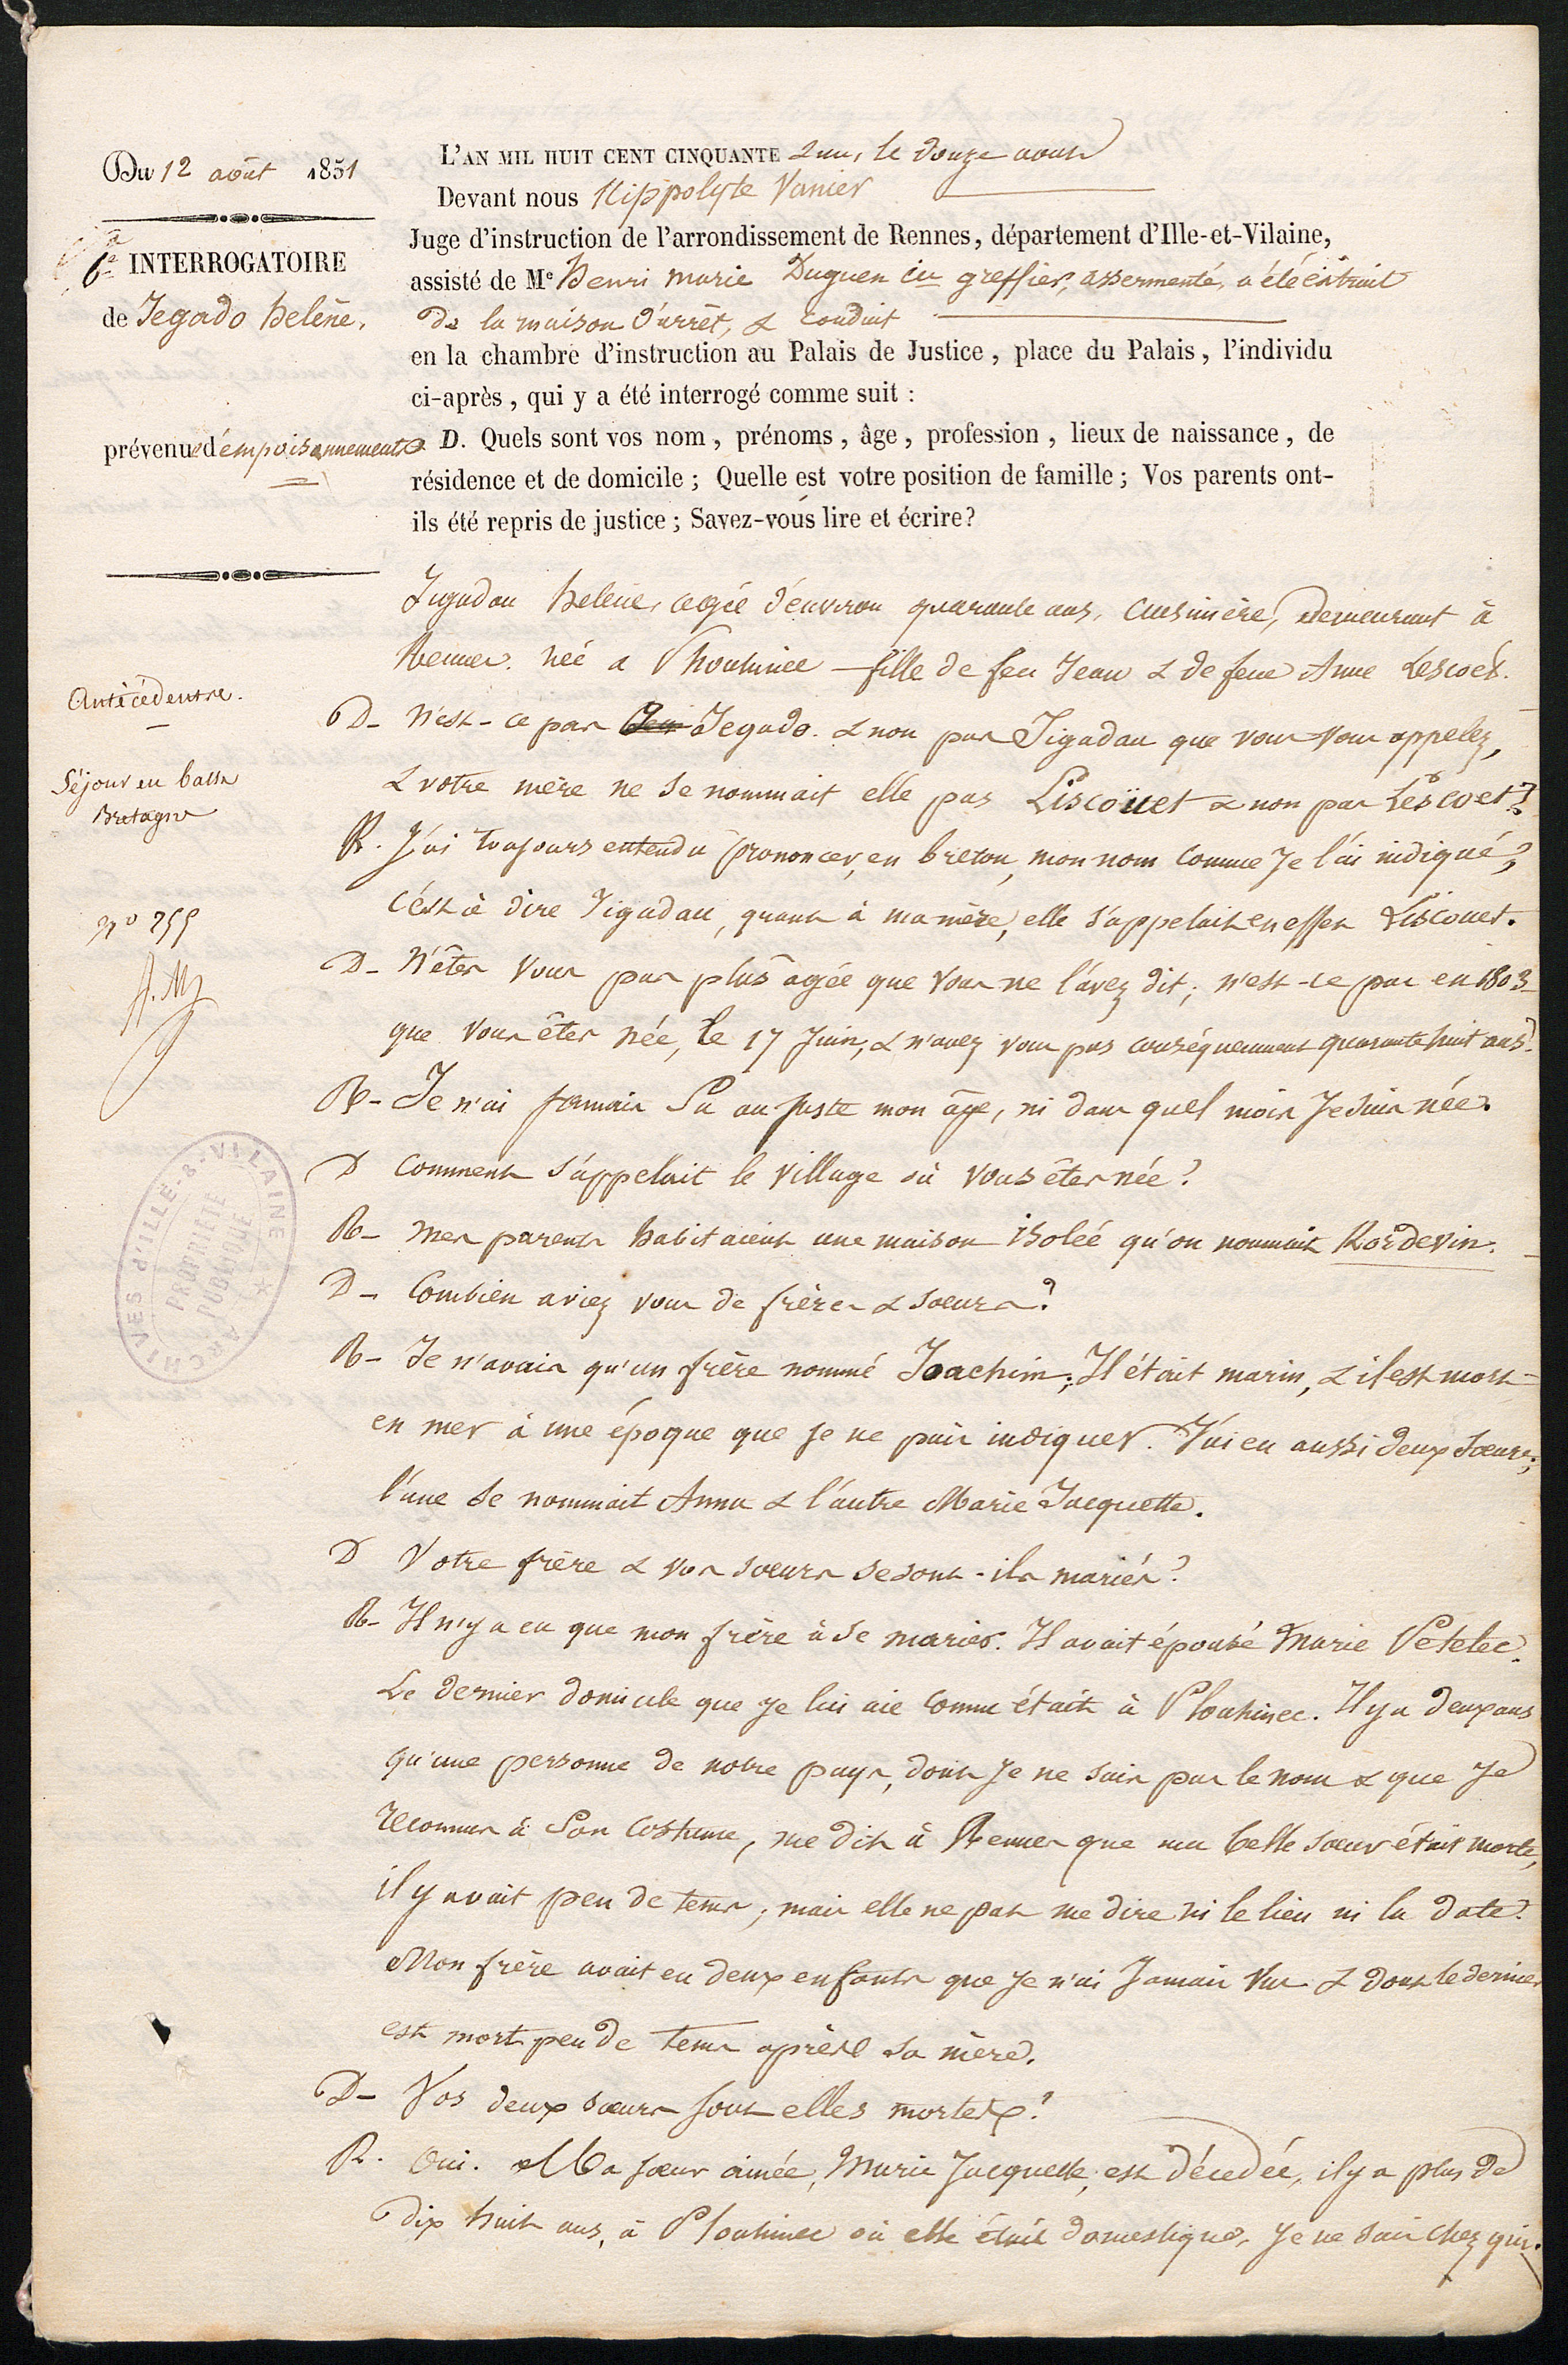 Du 12 août 1851
6e INTERROGATOIRE
de Jegado helène,
prévenue d'empoisonnements
Antécédents.
Séjour en basse
Bretagne
no 255
PROPRIÉTÉ PUBLIQUE
ARCHIVES d'ILLE-&-VILAINE
L'AN MIL HUIT CENT CINQUANTE & un, le douze aout
Devant nous Hippolyte Vanier
Juge d'instruction de l'arrondissement de Rennes, département d'Ille-et-Vilaine,
assisté de Me Henri Marie Duguen greffier, assermenté, a été extrait
de la maison d'arrêt, & conduit
en la chambre d'instruction au Palais de Justice, place du Palais, l'individu
ci-après, qui y a été interrogé comme suit :
D. Quels sont vos nom, prénoms, âge, profession, lieux de naissance, de
résidence et de domicile ; Quelle est votre position de famille ; Vos parents ont-
ils été repris de justice ; Savez-vous lire et écrire?
Jigadau helène, agée d'environ quarante ans, cuisinière, demeurant à
Rennes. née a Plouhinec - fille de feu Jean & de feue Anne Lescoët.
D- N'est-ce pas Jegado & non pas Jigadau que vous vous appelez,
& votre mère ne se nommait elle pas Liscoüet & non pas Lescoet?
R. J'ai toujours entendu prononcer, en breton, mon nom comme Je l'ai indiqué,
c'est à dire Jigadau, quant à ma mère, elle s'appelait en effet Liscouet.
D- N'êtes vous pas plus agée que vous ne l'avez dit ; n'est-ce pas en 1803
que vous êtes née, le 17 Juin, & n'avez vous pas conséquemment quarante huit ans?
R- Je n'ai jamais su au juste mon âge, ni dans quel mois Je suis née.
D Comment s'appelait le village où vous êtes née?
R- mes parents habitaient une maison isolée qu'on nommait Kordevin.
D- Combien aviez vous de frères & soeurs?
R- Je n'avais qu'un frère nommé Joachim ; Il était marin, & il est mort
en mer à une époque que Je ne puis indiquer. J'ai eu aussi deux soeurs ;
l'une se nommait Anna & l'autre Marie Jacquette.
D Votre frère & vos soeurs se sont-ils mariés?
R- Il n'y a eu que mon frère à se marier. Il avait épousé Marie Petelec.
Le dernier domicile que je lui aie connu était à Plouhinec. Il y a deux ans
qu'une personne de notre pays, dont Je ne sais pas le nom & que Je
reconnus à son costume, me dit à Rennes que ma belle soeur était morte,
il y avait peu de tems ; mais elle ne put me dire ni le lieu ni la date.
Mon frère avait eu deux enfants que Je n'ai Jamais vus & dont le dernier
est mort peu de tems après sa mère.
D- Vos deux soeurs sont elles mortes?
R. Oui. Ma soeur ainée, Marie Jacquette, est décédée, il y a plus de
dix huit ans, à Plouhinec où elle était domestique, Je ne sais chez qui.